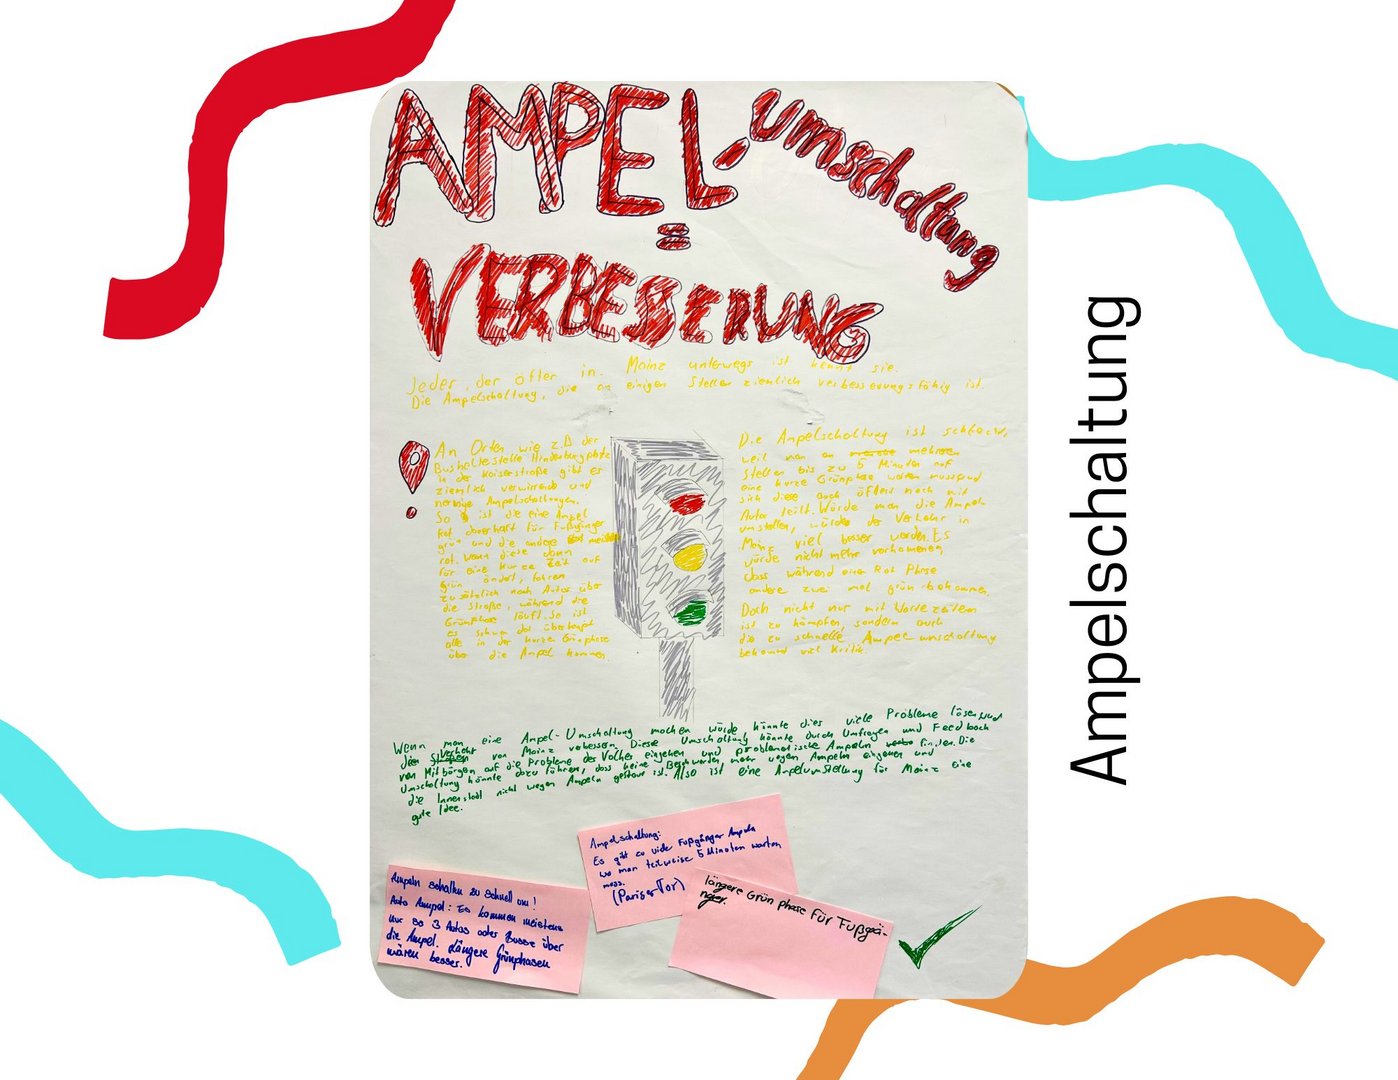 AMPEL-Umschaltung
=
VERBESSERUNG
Jeder, der öfter in Mainz unterwegs ist kennt sie.
Die Ampelschaltung, die an einigen Stellen ziemlich verbesserungsfähig ist.
An Orten wie z.B der
Bushaltestelle Hindenburgplatz
in der Kaiserstraße gibt es
ziemlich verwirrende und
nervige Ampelschaltungen.
So ist die eine Ampel
Rot dauerhaft für Fußgänger
grün und die andere meistens
rot. Wenn diese dann
für eine kurze Zeit auf
Grün ändert, fahren
zusätzlich noch Autos über
die Straße, während die
Grünphase läuft. So ist
es schwer das überhaupt
alle in der kurzen Grünphase
über die Ampel kommen.
Die Ampelschaltung ist schlecht,
weil man an mehreren
Stellen bis zu 5 Minuten auf
eine kurze Grünphase warten muss und
sich diese auch öfters noch mit
Autos teilt. Würde man die Ampeln
umstellen, würde der Verkehr in
Mainz viel besser werden. Es
würde nicht mehr vorkommen,
dass während einer Rot Phase
andere zwei mal grün bekommen.
Doch nicht nur mit Wartezeiten
ist zu kämpfen, sondern auch
die zu schnelle Ampelumschaltung
bekommt viel Kritik.
Wenn man eine Ampel-Umschaltung machen würde, könnte dies viele Probleme lösen und
den Verkehr von Mainz verbessern. Diese Umschaltung könnte durch Umfragen und Feedback
von Mitbürgen auf die Probleme des Volkes eingehen und problematische Ampeln finden. Die
Umschaltung könnte dazu führen, dass keine Beschwerden mehr wegen Ampeln eingehen und
die Innenstadt nicht wegen Ampeln gestaut ist. Also ist eine Ampelumstellung für Mainz eine
gute Idee.
Ampelschaltung:
Es gibt zu viele Fußgänger Ampeln
wo man teilweise 5 Minuten warten
muss.
(Pariser Tor)
Ampeln schalten zu schnell um!
Auto Ampel: Es kommen meistens
nur so 3 Autos oder Busse über
die Ampel. Längere Grünphasen
wären besser.
längere Grün phase für Fußgä-
nger.
Ampelschaltung